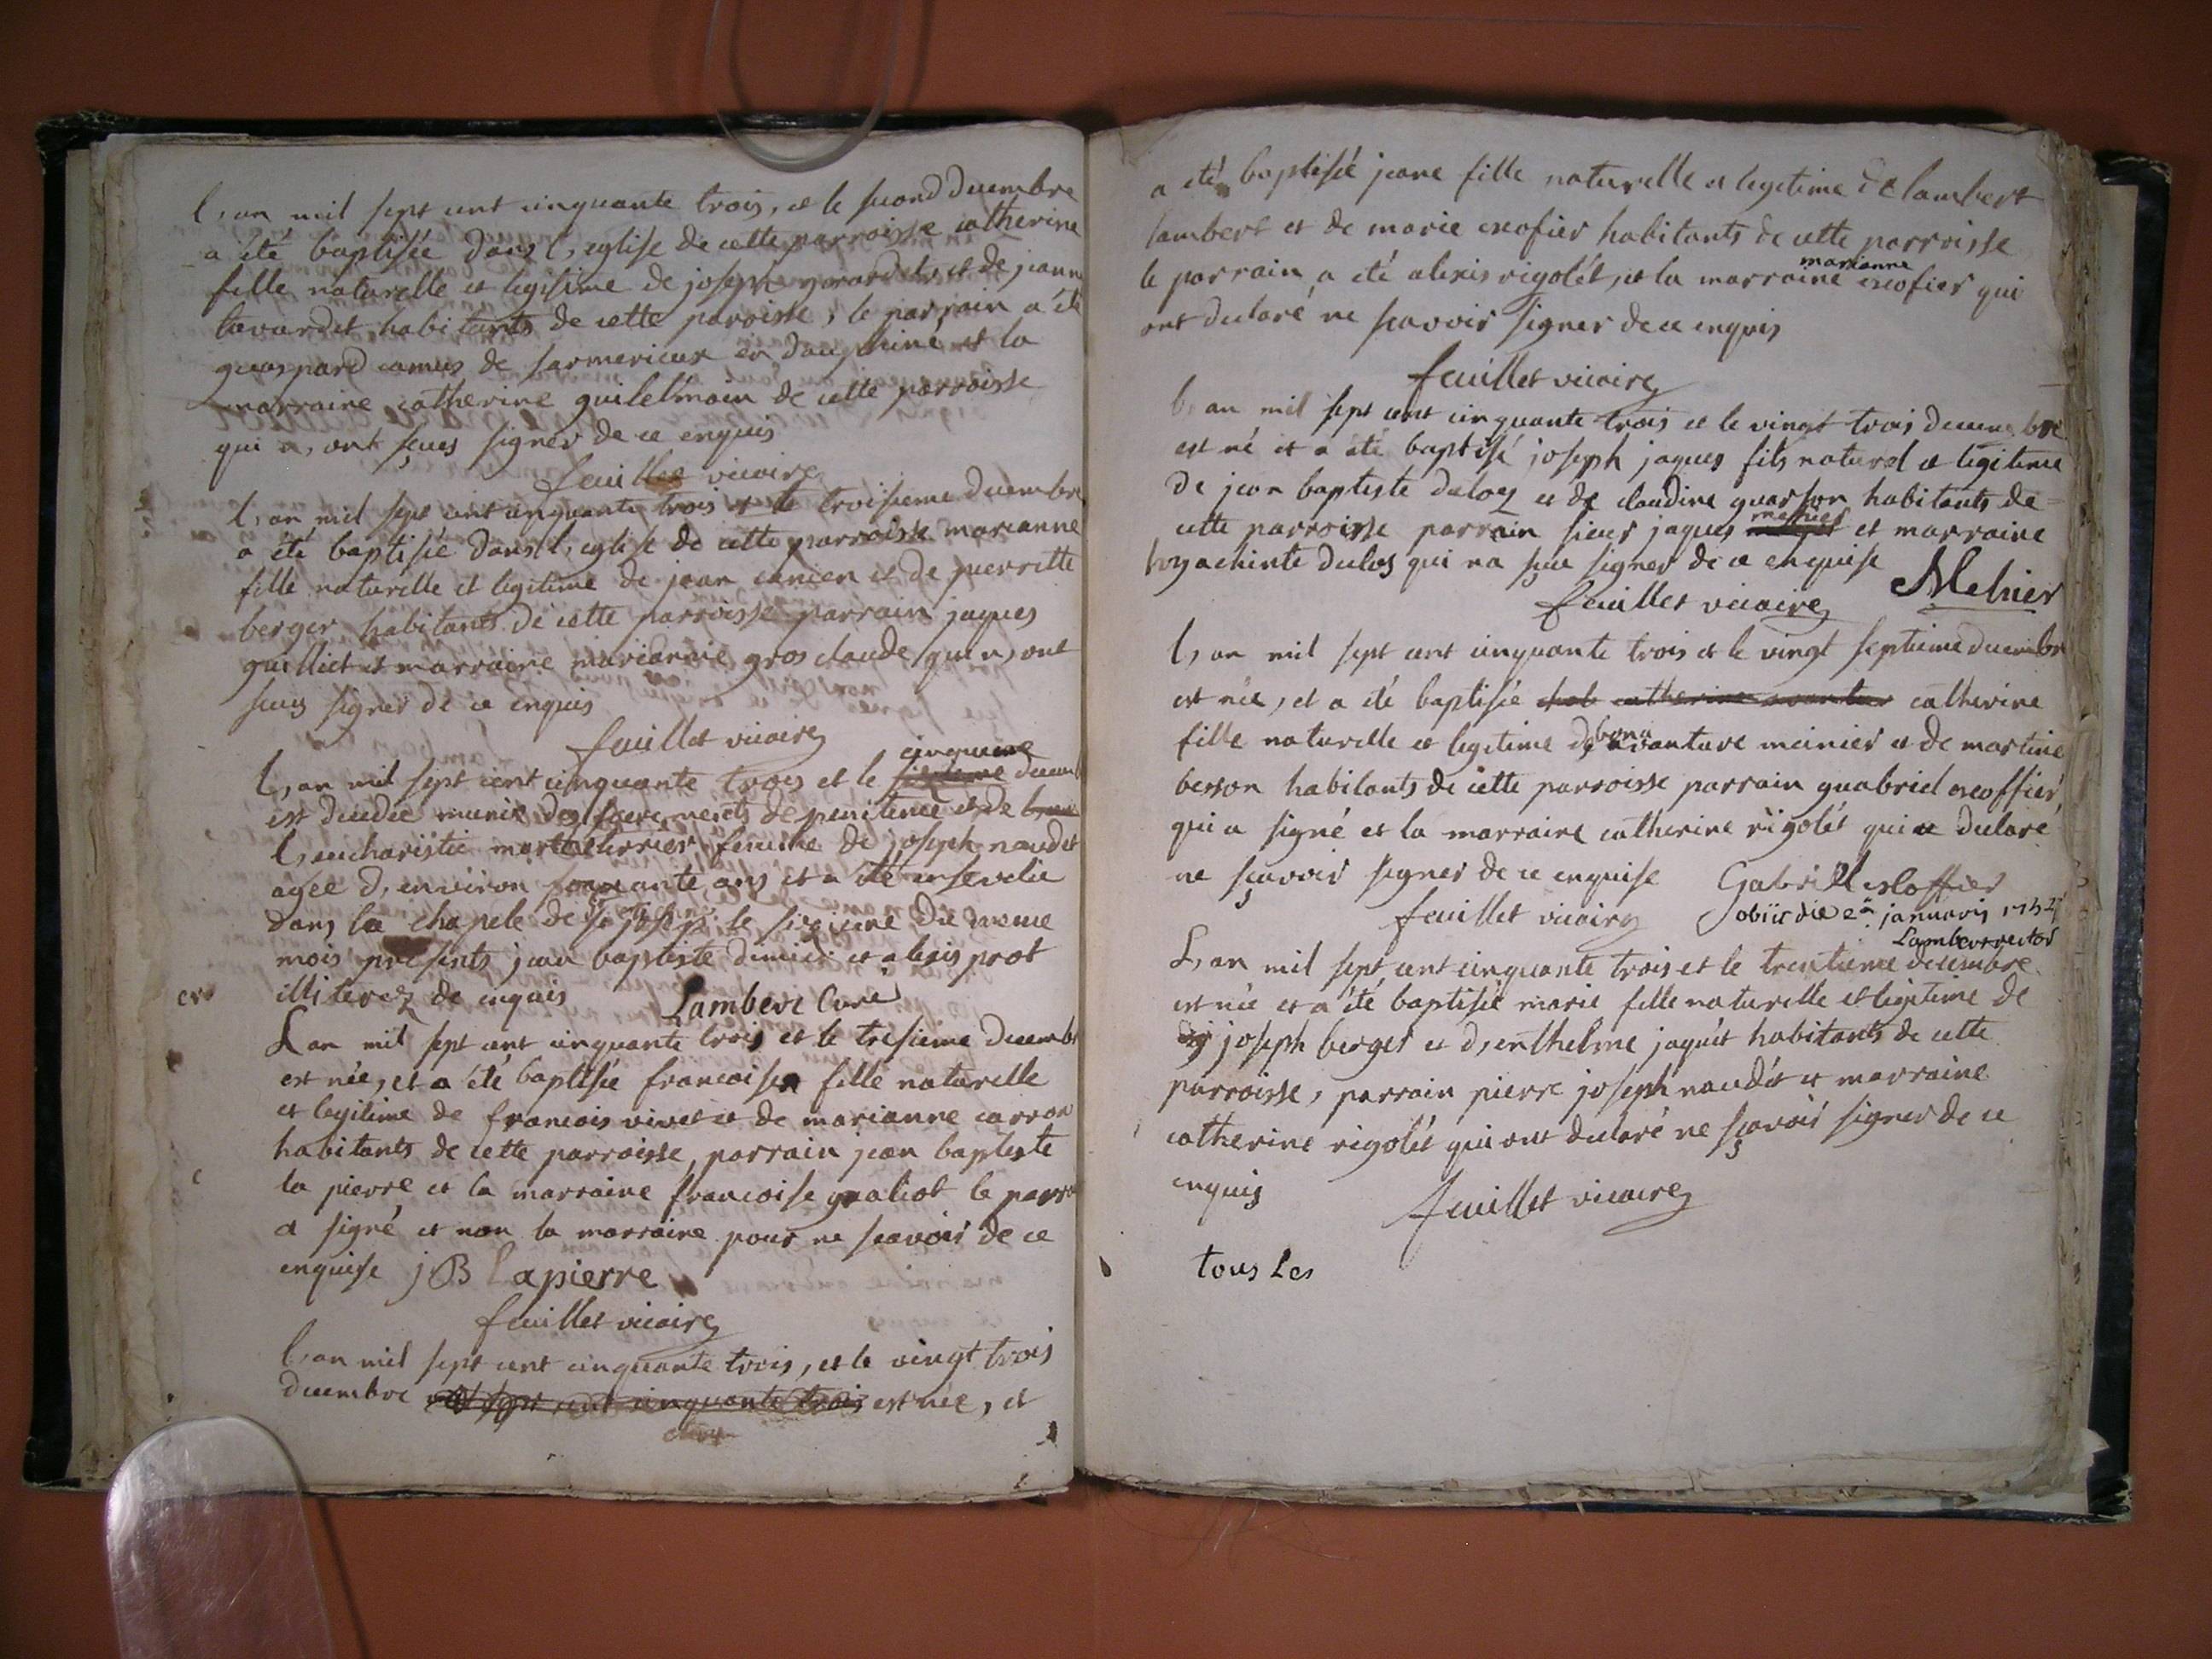 l,an mil sept cent cinquante trois, et le second decembre
a été baptisée dans l,eglise de cette parroisse catherine
fille naturelle et legitime de joseph et de jeanne
tavardet habitants de cette paroisse, le parrain a été
guaspard camus de sarmerieux en dauphiné, et la
marraine catherine guilelmain de cette parroisse
qui n,ont sçeus signer de ce enquis
feuillet vicaire
l,an mil sept cent cinquante trois et le troisieme decembre
a été baptisée dans l,eglise de cette parroisse marianne
fille naturelle et legitime de jean cancen et de pierrette
berger habitants de cette parroisse parrain jaques
guilliet et marraine marianne gros claude qui n,ont
sceus signer de ce enquis
feuillet vicaire
cinquieme
l,an mil sept cent cinquante trois et le decemb
est decedée munie des sacrements de penitence et de
l,eucharistie marthe femme de joseph naudet
agée d,environ soixante ans et a été ensevelie
dans la chapele de st joseph le sixieme du meme
mois presents jean baptiste dimier et alexis prot
illiterez de enquis Lambert Curé
L an mil sept cent cinquante trois et le tresieme decembr
est née, et a été baptisée francoise fille naturelle
et legitime de francois vivet et de marianne carron
habitants de cette parroisse, parrain jean baptiste
la pierre et la marraine francoise gualiot le parra
a signé et non la marraine pour ne scavoir de ce
enquise jB Lapierre
feuillet vicaire
l,an mil sept cent cinquante trois, et le vingt trois
decembre mil sept cent cinquante trois est née, et
a été baptisée jeane fille naturelle et legitime de lambert
lambert et de marie excofier habitants de cette parroisse
marianne
le parrain a été alexis rigolét, et la marraine excofier qui
ont declaré ne scavoir signer de ce enquis
feuillet vicaire
l,an mil sept cent cinquante trois et le vingt trois decembre
est né et a été baptisé joseph jaques fils naturel et légitime
de jean baptiste duloz et de claudine quarson habitants de
cette parroisse parrain sieur jaques mehier et marraine
hyachinte dulos qui na sçeu signer de ce enquise
feuillet vicaire Mehier
l,an mil sept cent cinquante trois et le vingt septieme decembre
est née, et a été baptisée catherine
fille naturelle et legitime de bonavanture meinier et de martine
besson habitants de cette parroisse parrain guabriel excoffier,
qui a signé et la marraine catherine rigolét qui a declaré
ne sçavoir signer de ce enquise Gabriel escoffier
feuillet vicaire obiit die 2a januarij
Lambert rector
L,an mil sept cent cinquante trois et le trentieme decembre
est née et a été baptisée marie fille naturelle et legitime de
joseph berger et d,enthelme jaquét habitants de cette
parroisse, parrain pierre joseph naudét et marraine
catherine rigolét qui ont declaré ne sçavoir signer de ce
enquis feuillet vicaire
tous Les